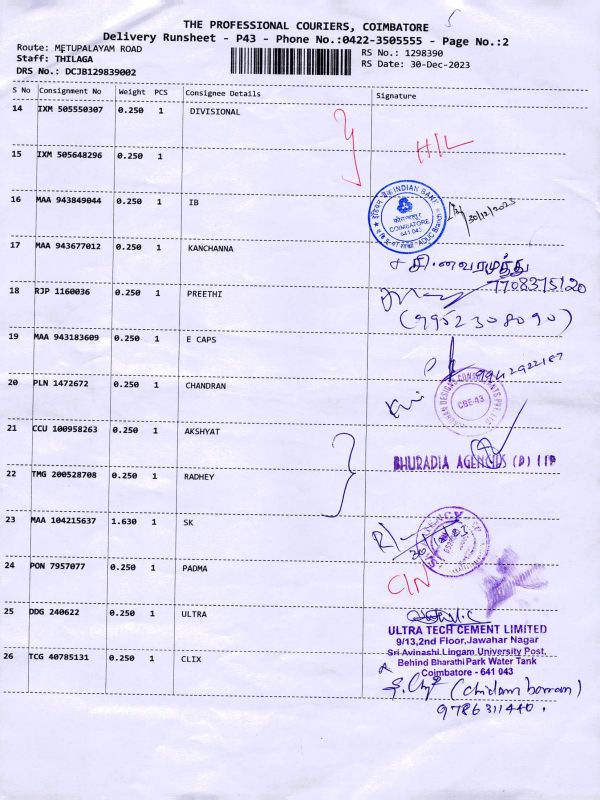 THE PROFESSIONAL COURIERS, COIMBATORE
Delivery Runsheet - P43 - Phone No.:0422-3505555 - Page No.:2
Route: METUPALAYAM ROAD
Staff: THILAGA
DRS No.: DCJB129839002
RS No.: 1298390
RS Date: 30-Dec-2023
S No Consignment No Weight PCS Consignee Details Signature
14 IXM 505550307 0.250 1 DIVISIONAL
15 IXM 505648296 0.250 1 H/L
16 MAA 943849044 0.250 1 IB
INDIAN BANK
COIMBATORE
641 043
30/12/2023
17 MAA 943677012 0.250 1 KANCHANNA
7708375120
18 RJP 1160036 0.250 1 PREETHI
(9952308090)
19 MAA 943183609 0.250 1 E CAPS
20 PLN 1472672 0.250 1 CHANDRAN
CBE-43
21 CCU 100958263 0.250 1 AKSHYAT
BHURADIA AGENCIES (P) LTD
22 TMG 200528708 0.250 1 RADHEY
23 MAA 104215637 1.630 1 SK
24 PON 7957077 0.250 1 PADMA
C/N
25 DDG 240622 0.250 1 ULTRA
ULTRA TECH CEMENT LIMITED
9/13,2nd Floor,Jawahar Nagar
Sri Avinashi.Lingam University Post,
Behind Bharathi Park Water Tank
Coimbatore - 641 043
26 TCG 40785131 0.250 1 CLIX
(Chidambaram)
9786311440.